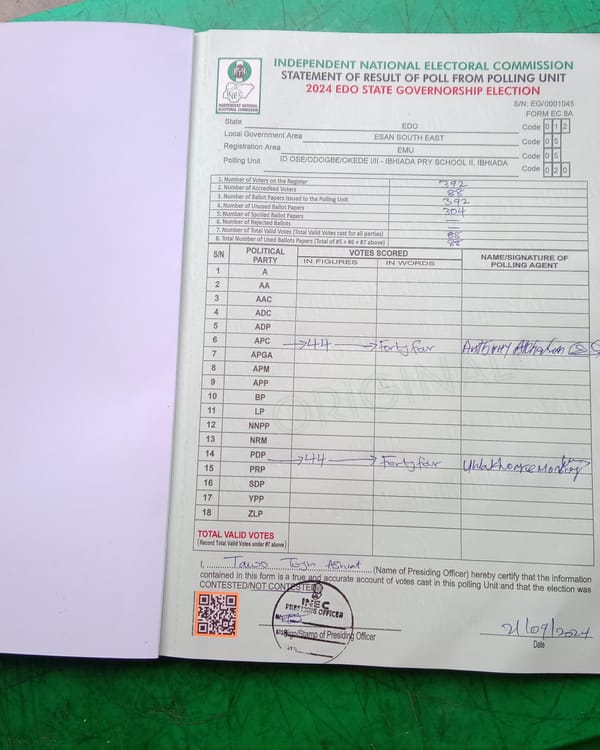 INDEPENDENT NATIONAL ELECTORAL COMMISSION
STATEMENT OF RESULT OF POLL FROM POLLING UNIT
2024 EDO STATE GOVERNORSHIP ELECTION
INEC
INDEPENDENT NATIONAL ELECTORAL COMMISSION
S/N: EG/0001045
FORM EC 8A
State EDO Code 0 1 2
Local Government Area ESAN SOUTH EAST Code 0 5
Registration Area EMU Code 0 5
Polling Unit ID OSE/ODOGBE/OKEDE I/II - IBHIADA PRY SCHOOL II, IBHIADA Code 0 2 0
1. Number of Voters on the Register 392
2. Number of Accredited Voters 88
3. Number of Ballot Papers Issued to the Polling Unit 392
4. Number of Unused Ballot Papers 304
5. Number of Spoiled Ballot Papers —
6. Number of Rejected Ballots —
7. Number of Total Valid Votes (Total Valid Votes cast for all parties) 88
8. Total Number of Used Ballots Papers (Total of #5 + #6 + #7 above) 88
S/N POLITICAL PARTY VOTES SCORED NAME/SIGNATURE OF POLLING AGENT
IN FIGURES IN WORDS
1 A
2 AA
3 AAC
4 ADC
5 ADP
6 APC 44 Forty four Anthony
7 APGA
8 APM
9 APP
10 BP
11 LP
12 NNPP
13 NRM
14 PDP 44 Forty four
15 PRP
16 SDP
17 YPP
18 ZLP
ORIGINAL
TOTAL VALID VOTES
(Record Total Valid Votes under #7 above)
I, Taiwo (Name of Presiding Officer) hereby certify that the information
contained in this form is a true and accurate account of votes cast in this polling Unit and that the election was
CONTESTED/NOT CONTESTED
INEC
PRESIDING OFFICER
Sign/Stamp of Presiding Officer
21/09/2024
Date